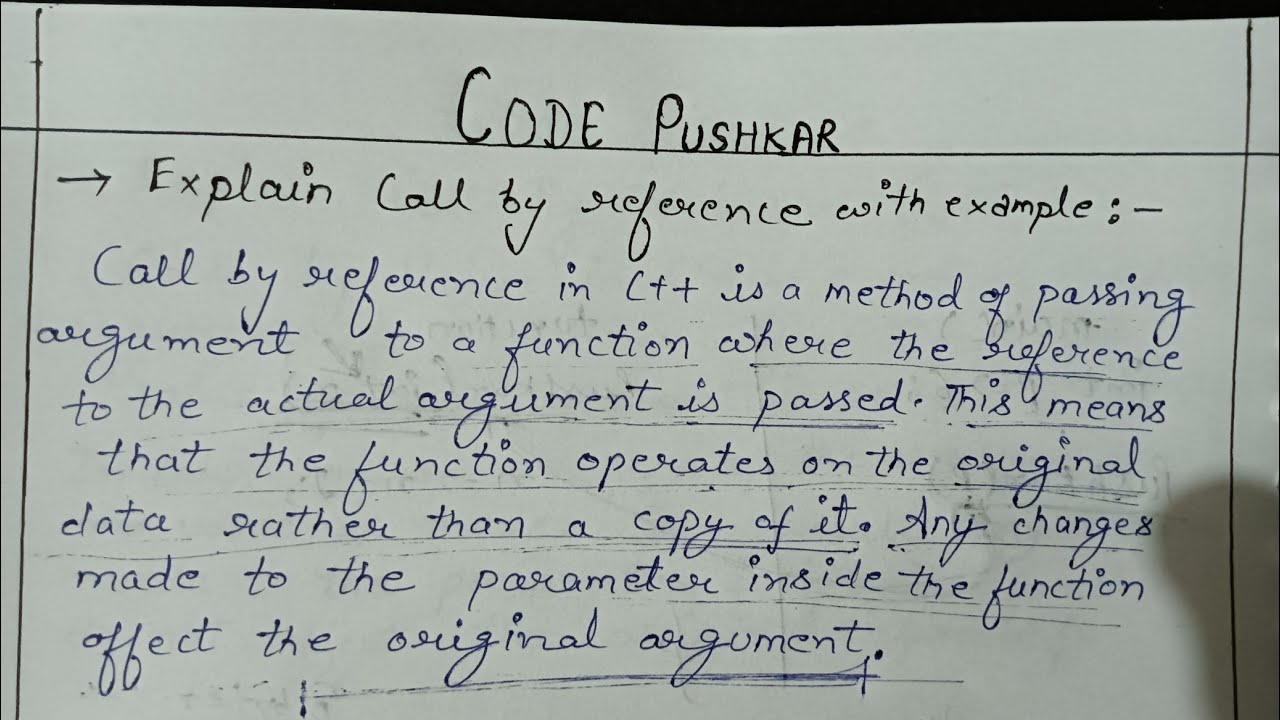 CODE PUSHKAR
→ Explain Call by reference with example:-
Call by reference in C++ is a method of passing
argument to a function where the reference
to the actual argument is passed. This means
that the function operates on the original
data rather than a copy of it. Any changes
made to the parameter inside the function
affect the original argument.